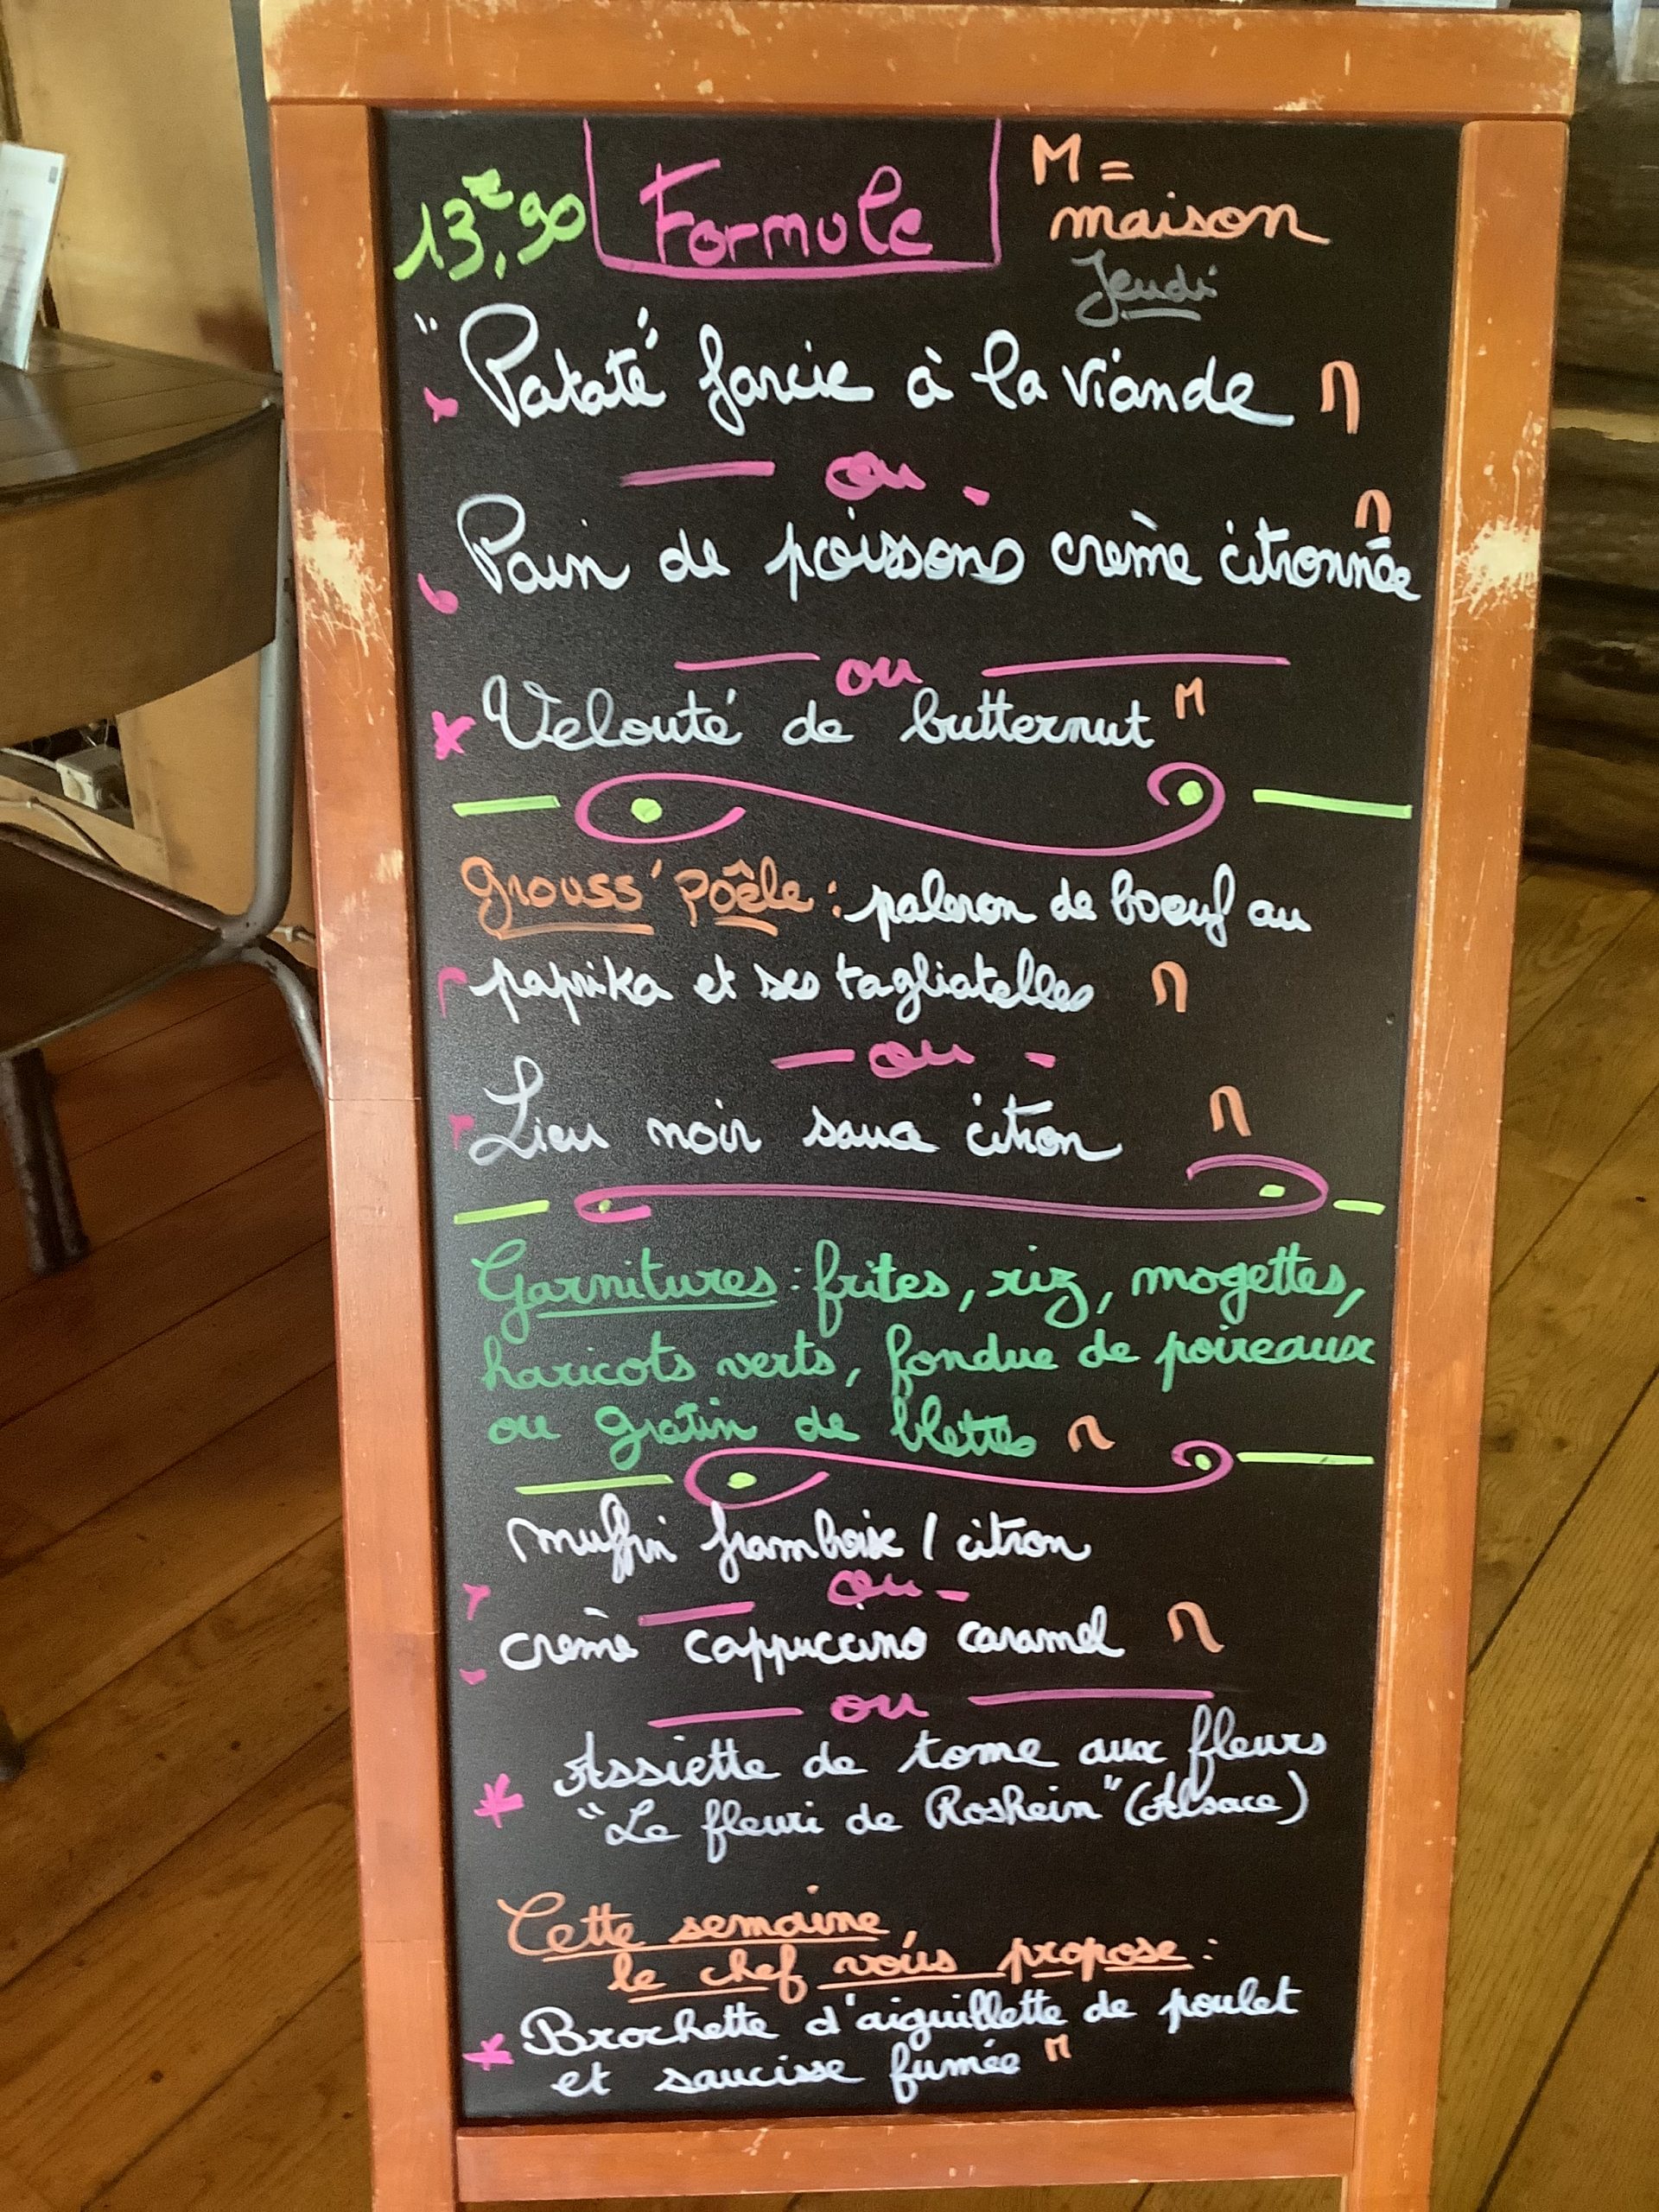 13,€90 Formule M =
maison
Jeudi
"Patate" farcie à la viande M
ou
M
Pain de poissons crème citronnée
ou
Velouté de butternut M
Grouss' Poêle : paleron de boeuf au
paprika et ses tagliatelles M
ou
Lieu noir sauce citron M
Garnitures : frites, riz, mogettes,
haricots verts, fondue de poireaux
ou gratin de blettes M
muffin framboise / citron
ou
crème cappuccino caramel M
ou
Assiette de tome aux fleurs
"Le fleuri de Roshein" (Alsace)
Cette semaine
le chef vous propose :
Brochette d'aiguillette de poulet
et saucisse fumée M